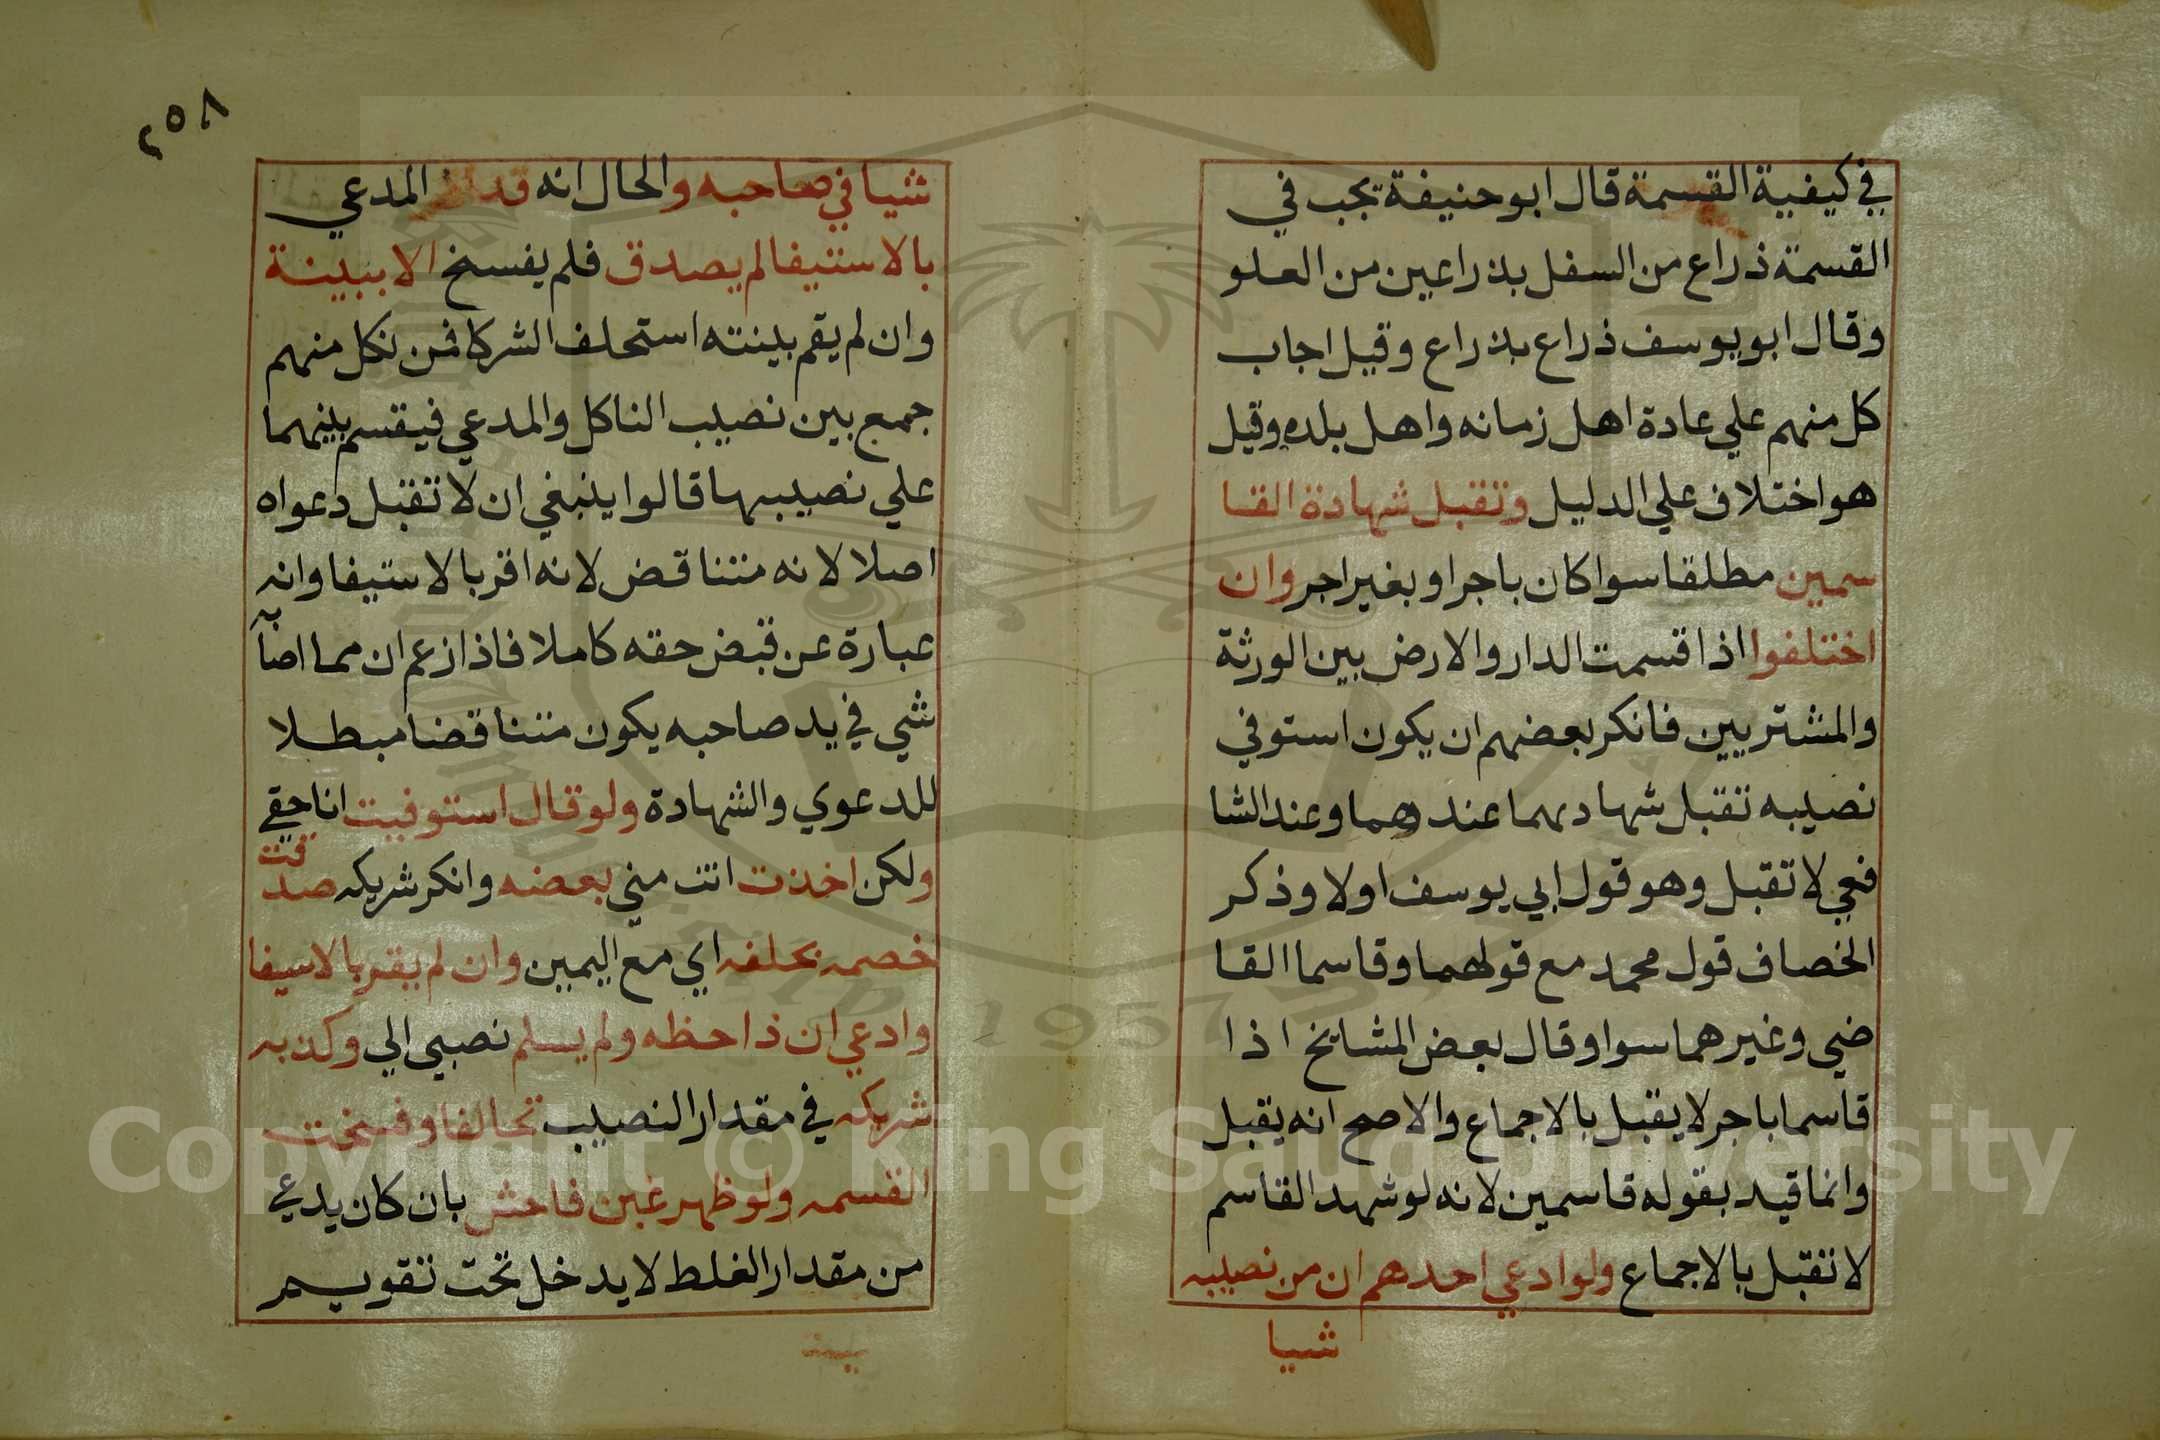 في كيفية القسمة قال ابو حنيفة تجب في
القسمة ذراع من السفل بذراعين من العلو
وقال ابو يوسف ذراع بذراع وقيل اجاب
كل منهم علي عادة اهل زمانه واهل بلده وقيل
هو اختلاف علي الدليل وتقبل شهادة القا
سمين مطلقا سوا كان باجر او بغير اجر وان
اختلفوا اذا قسمت الدار والارض بين الورثة
والمشتريين فانكر بعضهم ان يكون استوفي
نصيبه تقبل شهادىهما عندهما وعند الشا
فعي لا تقبل وهو قول ابي يوسف اولا وذكر
الخصاف قول محمد مع قولهما وقاسما القا
ضي وغيرهما سوا وقال بعض المشايخ اذا
قاسما باجر لا يقبل بالاجماع والاصح انه يقبل
وانما قيد بقوله قاسمين لانه لو شهد القاسم
لا تقبل بالاجماع ولو ادعي احدهم ان من نصيبه
شيا
٢٥٨
شيا في صاحبه والحال انه قد المدعي
بالاستيفا لم يصدق فلم يفسخ الا ببينة
وان لم يقم بينته استحلف الشركا فمن نكل منهم
جمع بين نصيب الناكل والمدعي فيقسم بينهما
علي نصيبهما قالوا ينبغي ان لا تقبل دعواه
اصلا لانه متناقض لانه اقر بالاستيفا وانه
عبارة عن قبض حقه كاملا فاذا زعم ان مما اصاب
شي في يد صاحبه يكون متناقضا مبطلا
للدعوي والشهادة ولو قال استوفيت انا حقي
ولكن اخذت انت مني بعضه وانكر شريكه صدقت
خصمه بحلفه اي مع اليمين وان لم يقر بالاسيفا
وادعي ان ذا حظه ولم يسلم نصيبي الي وكذبه
شريكه في مقدار النصيب تحالفا وفسخت
القسمه ولو ظهر غبن فاحش بان كان يدعي
من مقدار الغلط لا يدخل تحت تقويم
Copyright © King Saud University
1957